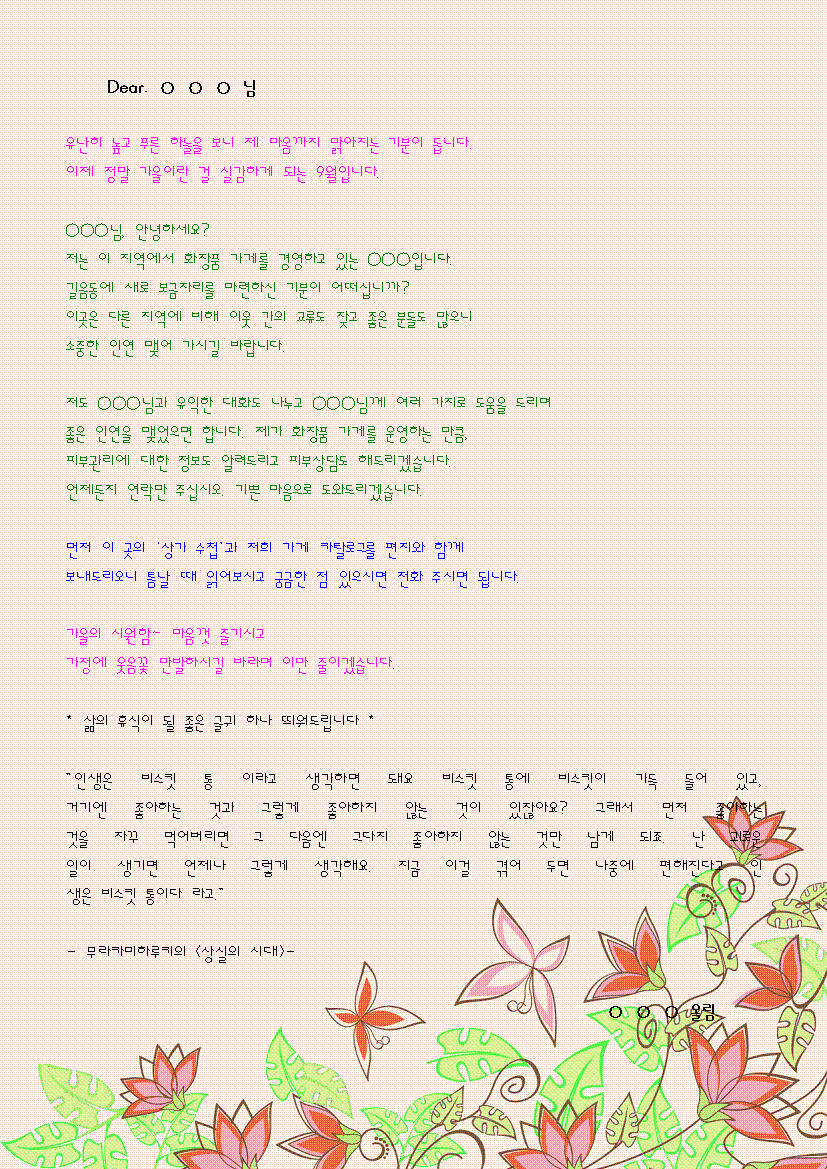 Dear. ○ ○ ○ 님
유난히 높고 푸른 하늘을 보니 제 마음까지 맑아지는 기분이 듭니다.
이제 정말 가을이란 걸 실감하게 되는 9월입니다.
○○○님, 안녕하세요?
저는 이 지역에서 화장품 가게를 경영하고 있는 ○○○입니다.
길음동에 새로 보금자리를 마련하신 기분이 어떠십니까?
이곳은 다른 지역에 비해 이웃 간의 교류도 잦고 좋은 분들도 많으니
소중한 인연 맺어 가시길 바랍니다.
저도 ○○○님과 유익한 대화도 나누고 ○○○님께 여러 가지로 도움을 드리며
좋은 인연을 맺었으면 합니다. 제가 화장품 가게를 운영하는 만큼,
피부관리에 대한 정보도 알려드리고 피부상담도 해드리겠습니다.
언제든지 연락만 주십시오. 기쁜 마음으로 도와드리겠습니다.
먼저 이 곳의 '상가 수첩'과 저희 가게 카탈로그를 편지와 함께
보내드리오니 틈날 때 읽어보시고 궁금한 점 있으시면 전화 주시면 됩니다.
가을의 시원함~ 마음껏 즐기시고
가정에 웃음꽃 만발하시길 바라며 이만 줄이겠습니다.
* 삶의 휴식이 될 좋은 글귀 하나 띄워드립니다 *
"인생은 비스킷 통 이라고 생각하면 돼요 비스킷 통에 비스킷이 가득 들어 있고,
거기엔 좋아하는 것과 그렇게 좋아하지 않는 것이 있잖아요? 그래서 먼저 좋아하는
것을 자꾸 먹어버리면 그 다음엔 그다지 좋아하지 않는 것만 남게 되죠. 난 괴로운
일이 생기면 언제나 그렇게 생각해요. 지금 이걸 겪어 두면 나중에 편해진다고 인
생은 비스킷 통이다 라고."
- 무라카미하루키의 <상실의 시대>-
○ ○ ○ 올림